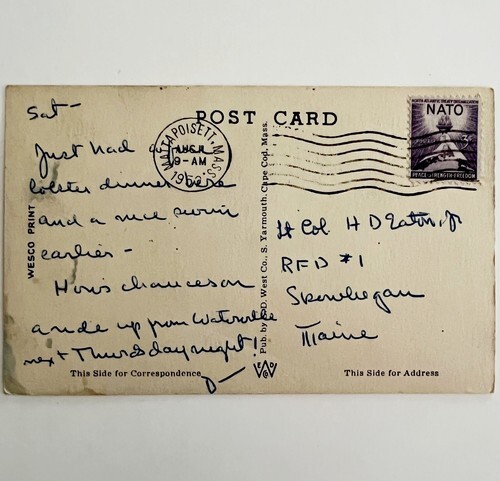 POST CARD
Sat-
Just had a
lobster dinner here
and a nice swim
earlier-
How's chances on
a ride up from Waterville
next Thursday night!
J—
This Side for Correspondence
WESCO PRINT
MATTAPOISETT, MASS.
AUG
9-AM
1952
Pub. by E.D. West Co., S. Yarmouth, Cape Cod, Mass.
WESCO
NORTH ATLANTIC TREATY ORGANIZATION
NATO
3¢
PEACE-STRENGTH-FREEDOM
Lt Col. H D Eaton, Jr
RFD #1
Skowhegan
Maine
This Side for Address